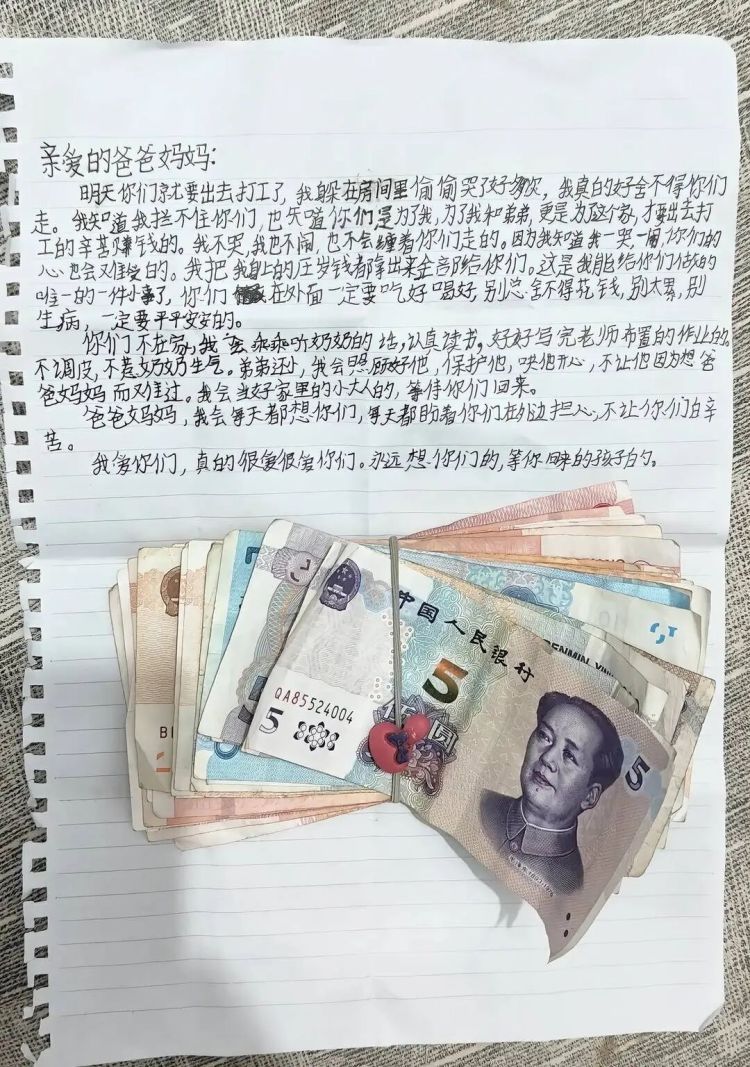 亲爱的爸爸妈妈:
明天你们就要出去打工了,我躲在房间里偷偷哭了好多次,我真的好舍不得你们
走。我知道我拦不住你们,也知道你们是为了我,为了我和弟弟,更是为了这个家,才要出去打
工的辛苦赚钱的。我不哭,我也不闹,也不会缠着你们走的。因为我知道我一哭,一闹,你们的
心也会又难受的。我把我自己的压岁钱都拿出来全部给你们。这是我能给你们做的
唯一的一件小事了,你们在外面一定要吃好喝好,别总舍不得花钱,别太累,别
生病,一定要平平安安的。
你们不在家,我会乖乖听奶奶的话,认真读书,好好写完老师布置的作业的。
不调皮,不惹奶奶生气。弟弟还小,我会照顾好他,保护他,哄他开心,不让他因为想爸
爸妈妈而又难过。我会当好家里的小大人的,等待你们回来。
爸爸妈妈,我会每天都想你们,每天都盼着你们在外边担心,不让你们白辛
苦。
我爱你们,真的很爱很爱你们。永远,想你们的,等你回来的孩子的。
中国人民银行
5
QA85524004
5
伍圆
5